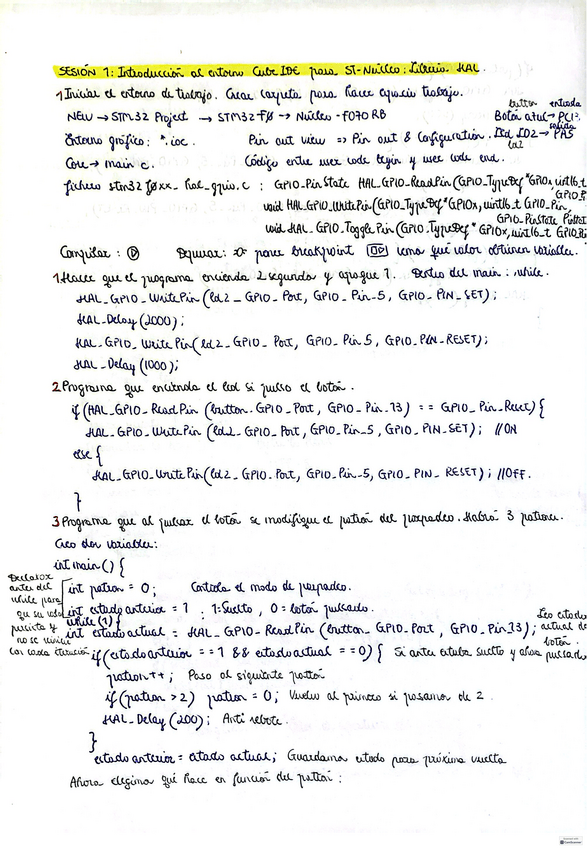 SESIÓN 1: Introducción al entorno Cube IDE para ST-Núcleo: Librería HAL.
1 Iniciar el entorno de trabajo. Crear carpeta para hacer espacio trabajo.
button entrada
NEW → STM32 Project → STM32 F0 → Núcleo - F070 RB Botón azul → PC13
salida
Entorno gráfico: *.ioc Pin out view => Pin out & Configuration. Led LD2 → PA5
ld2
Core → main.c Código entre user code begin y user code end.
fichero stm32f0xx_hal_gpio.c : GPIO_PinState HAL_GPIO_ReadPin (GPIO_TypeDef *GPIOx, uint16_t
GPIO_P
void HAL_GPIO_WritePin (GPIO_TypeDef *GPIOx, uint16_t GPIO_Pin,
GPIO_PinState PinStat
void HAL_GPIO_TogglePin (GPIO_TypeDef *GPIOx, uint16_t GPIO_Pi
Compilar: Depurar: poner breakpoint vemos qué valor obtienen variables.
1 Hacer que el programa encienda 2 segundos y apague 1. Dentro del main: while.
HAL_GPIO_WritePin (ld2_GPIO_Port, GPIO_Pin_5, GPIO_PIN_SET);
HAL_Delay (2000);
HAL_GPIO_WritePin (ld2_GPIO_Port, GPIO_Pin5, GPIO_PIN_RESET);
HAL_Delay (1000);
2 Programa que encienda el led si pulso el botón.
if (HAL_GPIO_ReadPin (button.GPIO_Port, GPIO_Pin_13) == GPIO_Pin_Reset) {
HAL_GPIO_WritePin (ld2_GPIO_Port, GPIO_Pin_5, GPIO_PIN_SET); //ON
else {
HAL_GPIO_WritePin (ld2_GPIO_Port, GPIO_Pin_5, GPIO_PIN_RESET); //OFF.
}
3 Programa que al pulsar el botón se modifique el patrón del parpadeo. Habrá 3 patrones.
Creo dos variables:
int main () {
Declarar
antes del
while para
que su valor
persista y
no se reinicie
con cada iteración
int patron = 0; Controla el modo de parpadeo.
int estado anterior = 1 1: Suelto, 0 = botón pulsado.
while (1) {
int estado actual = HAL_GPIO_ReadPin (button_GPIO_Port, GPIO_Pin13);
Leo estado
actual de
botón.
if (estado anterior == 1 && estado actual == 0) { Si antes estaba suelto y ahora pulsado
patron++; Paso al siguiente patrón
if (patron > 2) patron = 0; Vuelvo al primero si pasamos de 2.
HAL_Delay (200); Anti rebote.
}
estado anterior = estado actual; Guardamos estado para próxima vuelta
Ahora elegimos qué hace en función del patrón: